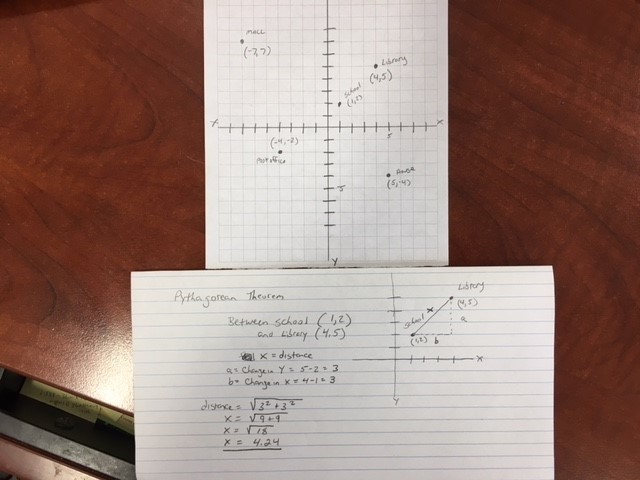 MALL
(-7,7)
Library
(4,5)
School
(1,2)
X
X
5
(-4,-2)
Post office
House
(5,-4)
5
Y
Pythagorean Theorem
Between School (1,2)
and Library (4,5)
X = distance
a = Change in Y = 5-2=3
b = Change in X = 4-1=3
distance = √3²+3²
X = √9+9
X = √18
X = 4.24
Library
(4,5)
School
X
a
(1,2)
b
X
Y